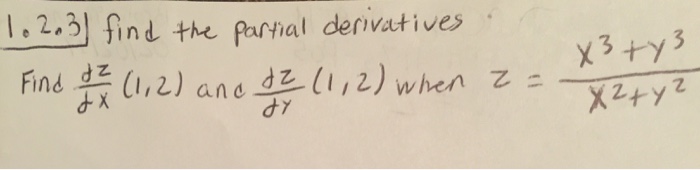 1.2.3] find the partial derivatives
Find dz/dx (1,2) and dz/dy (1,2) when z = x³+y³/x²+y²